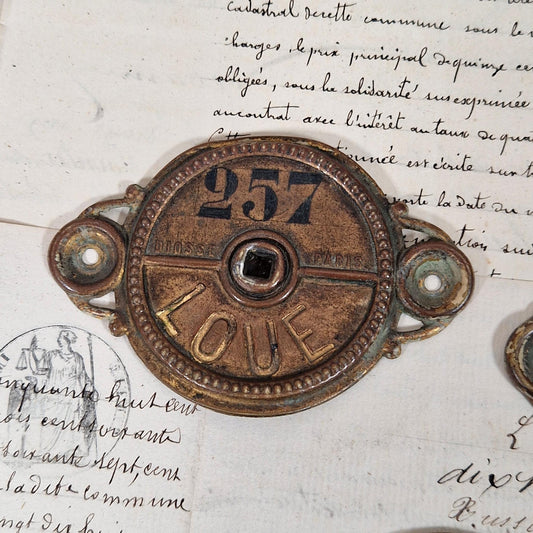 cadastral de cette commune sous le
charges, le prix principal de quinze cent
obligées, sous la solidarité susexprimée
au contrat avec l'intérêt au taux de qua
est écrite sur
porte la date du
suiv
257
DIOSSE PARIS
LOUE
inquante huit cent
ois cent soixante
oixante sept, cent
la dite commune
ngt dix huit
dix